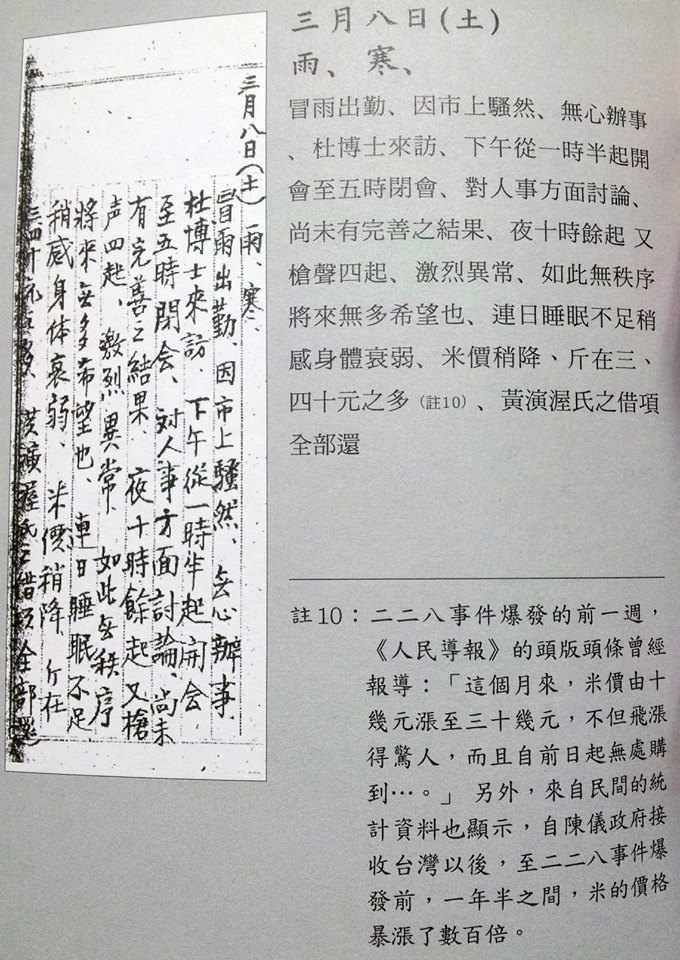 三月八日(土) 雨、寒、
冒雨出勤、因市上騷然、無心辦事、
杜博士來訪、下午從一時半起開会
至五時閉会、対人事方面討論、尚未
有完善之結果、夜十時餘起又槍
声四起、激烈異常、如此無秩序
將來無多希望也、連日睡眠不足
稍感身体衰弱、米價稍降、斤在
三、四十元之多、黃演渥氏之借項全部還
三月八日(土)
雨、寒、
冒雨出勤、因市上騷然、無心辦事
、杜博士來訪、下午從一時半起開
會至五時閉會、對人事方面討論、
尚未有完善之結果、夜十時餘起 又
槍聲四起、激烈異常、如此無秩序
將來無多希望也、連日睡眠不足稍
感身體衰弱、米價稍降、斤在三、
四十元之多(註10)、黃演渥氏之借項
全部還
註10：二二八事件爆發的前一週，
《人民導報》的頭版頭條曾經
報導：「這個月來，米價由十
幾元漲至三十幾元，不但飛漲
得驚人，而且自前日起無處購
到…。」另外，來自民間的統
計資料也顯示，自陳儀政府接
收台灣以後，至二二八事件爆
發前，一年半之間，米的價格
暴漲了數百倍。